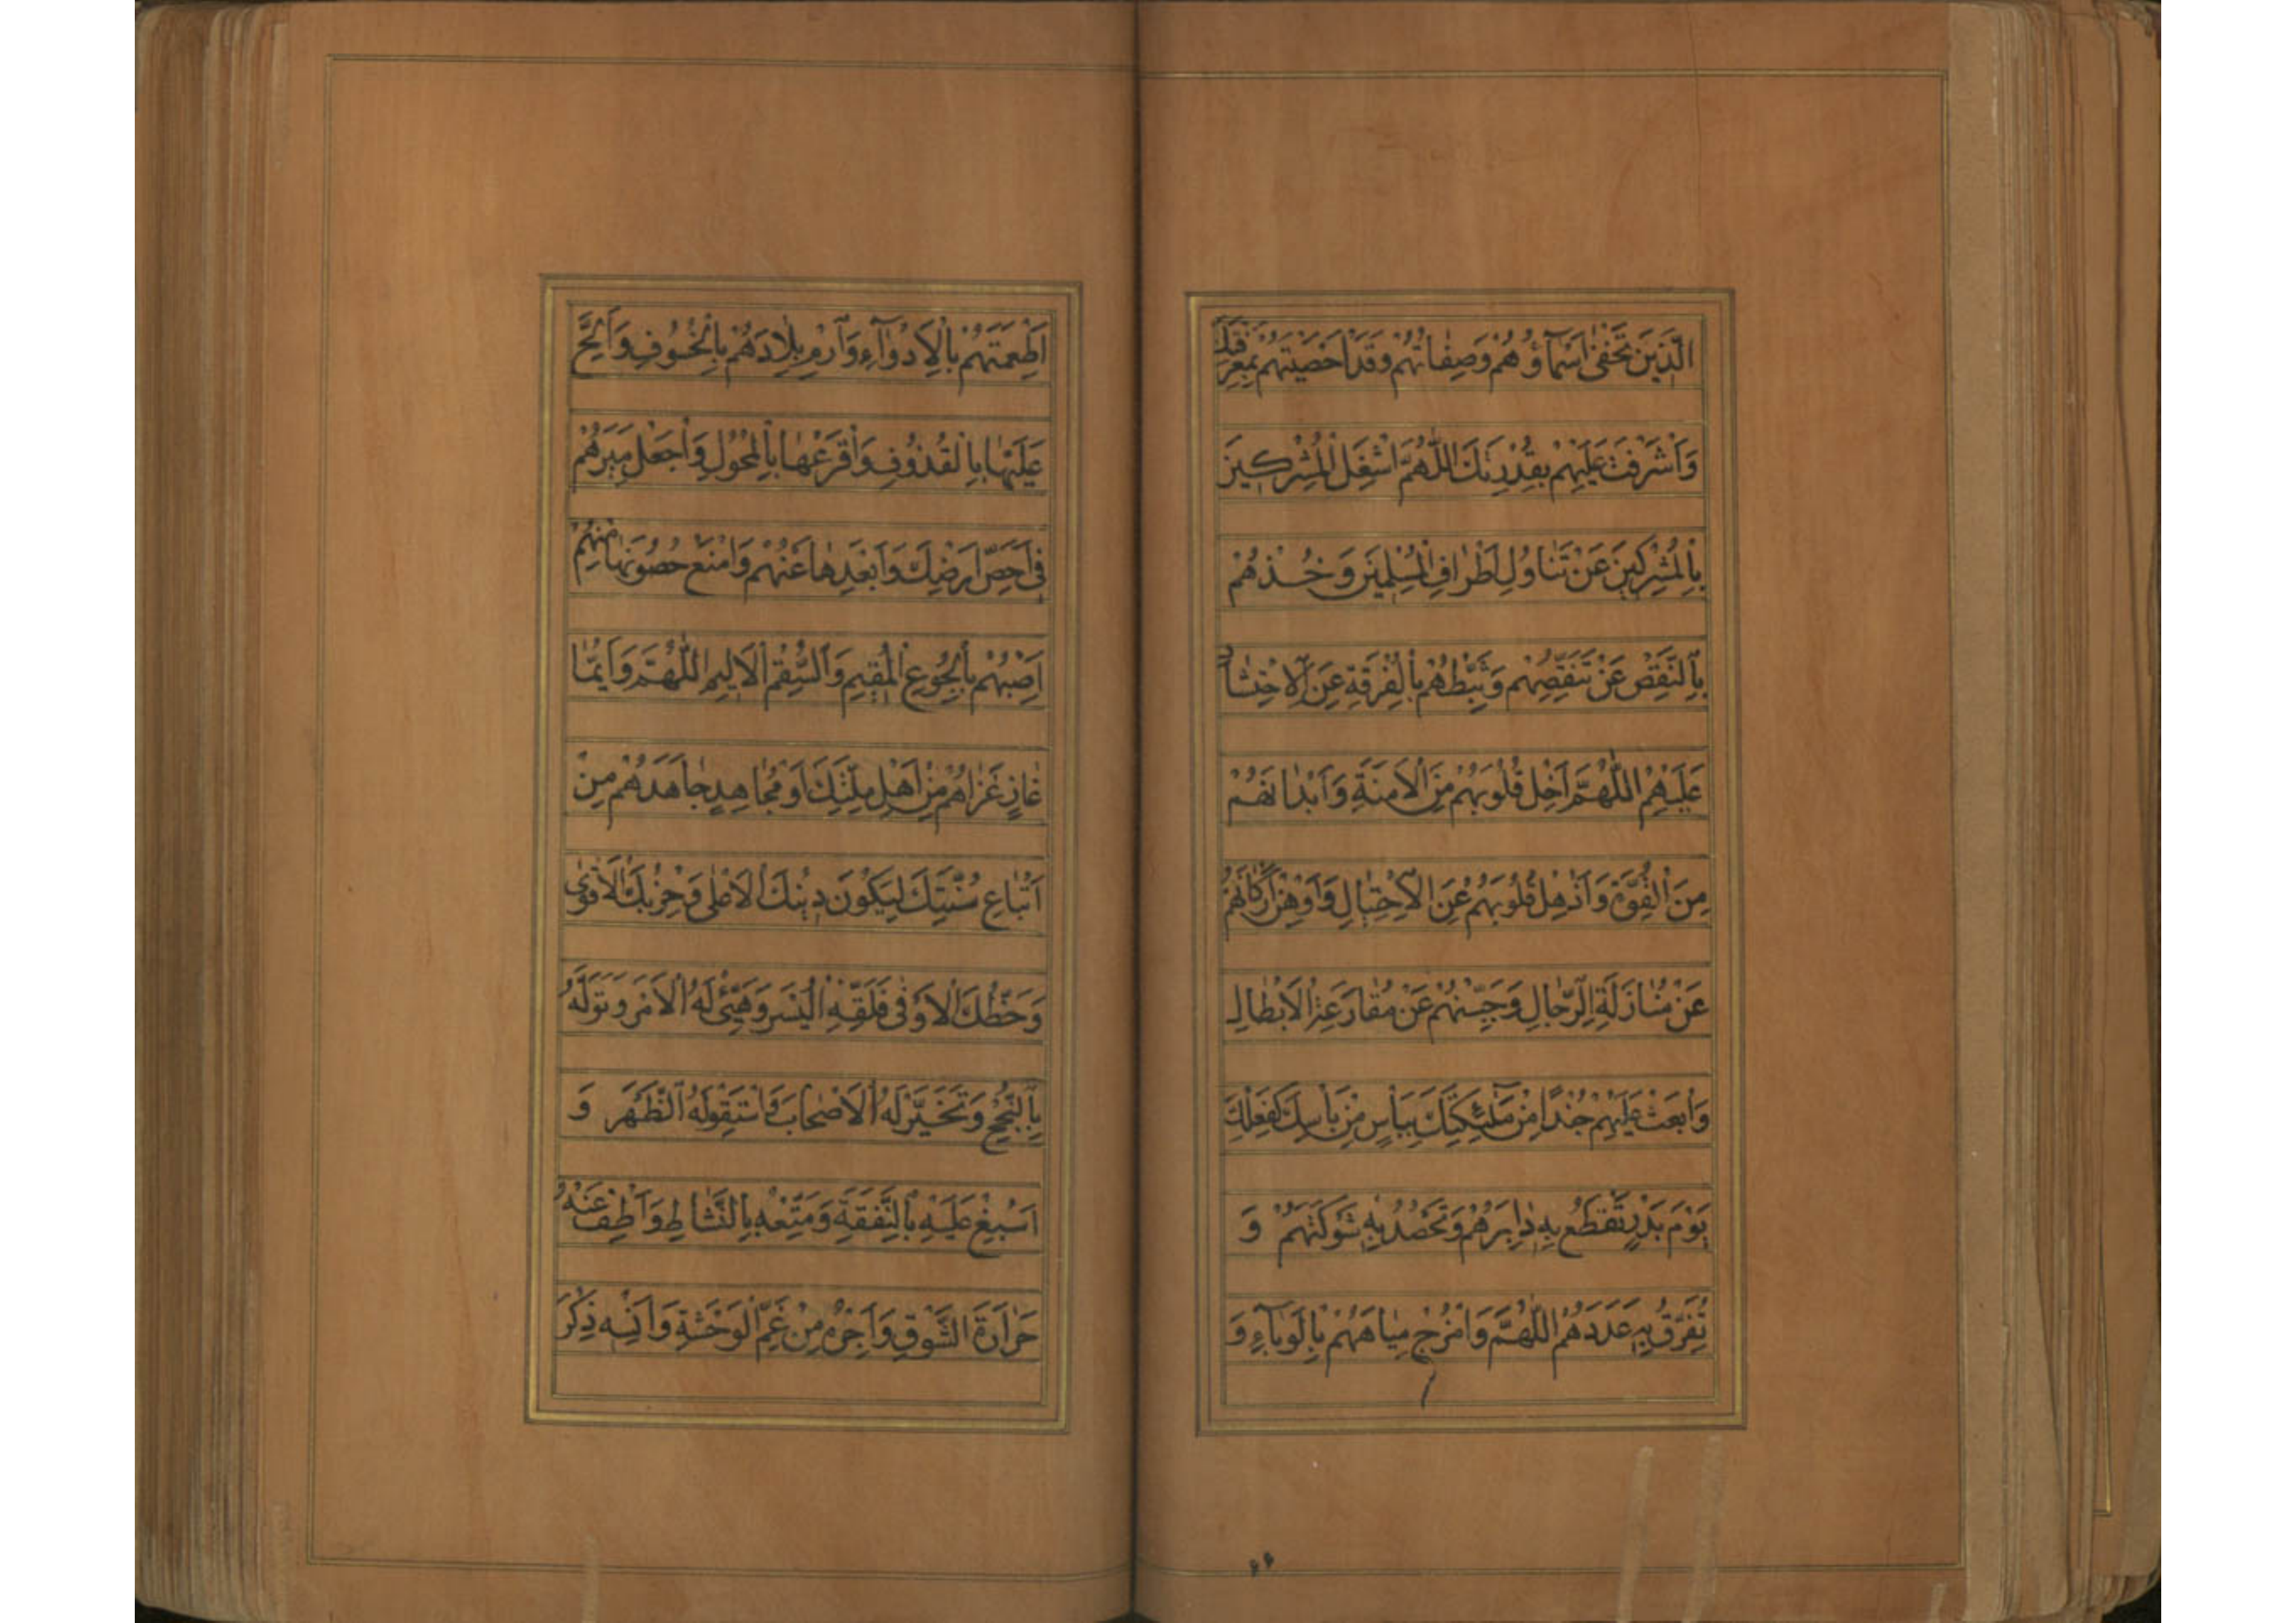 الَّذِينَ تَخْفىٰ اَسْمآؤُهُمْ وَصِفاتُهُمْ وَقَدْ اَحْصَيْتَهُمْ بِمَعْرِفَتِكَ
وَاَشْرَفْتَ عَلَيْهِمْ بِقُدْرَتِكَ اَللّٰهُمَّ اشْغَلِ الْمُشْرِكِينَ
بِالْمُشْرِكِينَ عَنْ تَناوُلِ اَطْرافِ الْمُسْلِمِينَ وَخُذْهُمْ
بِالنَّقْصِ عَنْ تَنَقُّصِهِمْ وَثَبِّطْهُمْ بِالْفُرْقَةِ عَنِ الْاِحْتِشادِ
عَلَيْهِمْ اَللّٰهُمَّ اَخْلِ قُلُوبَهُمْ مِنَ الْاَمَنَةِ وَاَبْدانَهُمْ
مِنَ الْقُوَّةِ وَاَذْهِلْ قُلُوبَهُمْ عَنِ الْاِحْتِيالِ وَاَوْهِنْ اَرْكانَهُمْ
عَنْ مُنازَلَةِ الرِّجالِ وَجَبِّنْهُمْ عَنْ مُقارَعَةِ الْاَبْطالِ
وَابْعَثْ عَلَيْهِمْ جُنْدًا مِنْ مَلٰٓئِكَتِكَ بِبَأْسٍ مِنْ بَأْسِكَ كَفِعْلِكَ
يَوْمَ بَدْرٍ تَقْطَعُ بِهِ دابِرَهُمْ وَتَحْصُدُ بِهِ شَوْكَتَهُمْ وَ
تُفَرِّقُ بِهِ عَدَدَهُمْ اَللّٰهُمَّ وَامْزُجْ مِياهَهُمْ بِالْوَبآءِ وَ
اَطْعِمَتَهُمْ بِالْاَدْوآءِ وَارْمِ بِلادَهُمْ بِالْخُسُوفِ وَاَلِحَّ
عَلَيْها بِالْقُذُوفِ وَافْرَعْها بِالْمُحُولِ وَاجْعَلْ مِيَرَهُمْ
فِي اَحَصِّ اَرْضِكَ وَاَبْعَدِها عَنْهُمْ وَامْنَعْ حُصُونَها مِنْهُمْ
اَصِبْهُمْ بِالْجُوعِ الْمُقِيمِ وَالسُّقْمِ الْاَلِيمِ اَللّٰهُمَّ وَاَيُّما
غازٍ غَزاهُمْ مِنْ اَهْلِ مِلَّتِكَ اَوْ مُجاهِدٍ جاهَدَهُمْ مِنْ
اَتْباعِ سُنَّتِكَ لِيَكُونَ دِينُكَ الْاَعْلىٰ وَحِزْبُكَ الْاَقْوىٰ
وَحَظُّكَ الْاَوْفىٰ فَلَقِّهِ الْيُسْرَ وَهَيِّئْ لَهُ الْاَمْرَ وَتَوَلَّهُ
بِالنُّجْحِ وَتَخَيَّرْ لَهُ الْاَصْحابَ وَاسْتَقْوِ لَهُ الظَّهْرَ وَ
اَسْبِغْ عَلَيْهِ بِالنَّفَقَةِ وَمَتِّعْهُ بِالنَّشاطِ وَاَطْفِ عَنْهُ
حَرارَةَ الشَّوْقِ وَاَجِرْهُ مِنْ غَمِّ الْوَحْشَةِ وَاَنْسِهِ ذِكْرَ
۶۶